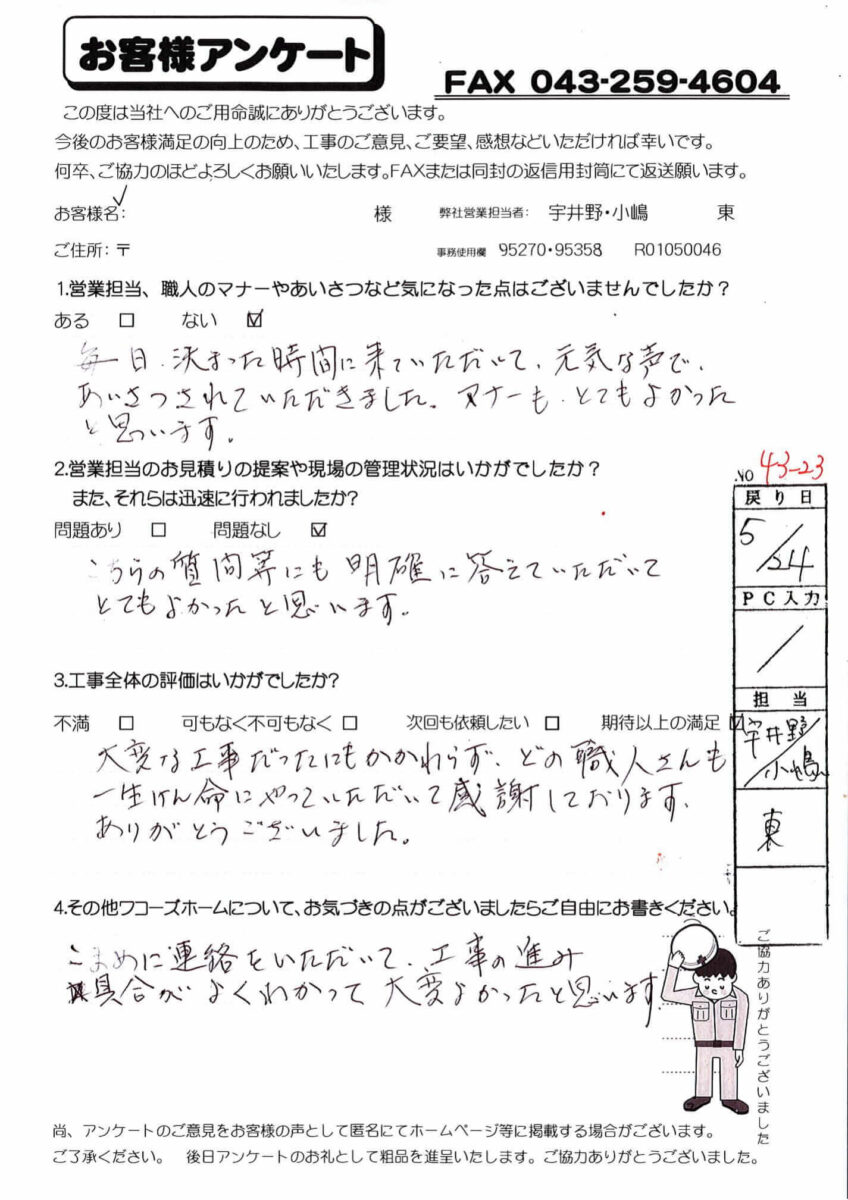 お客様アンケート
FAX 043-259-4604
この度は当社へのご用命誠にありがとうございます。
今後のお客様満足の向上のため、工事のご意見、ご要望、感想などいただければ幸いです。
何卒、ご協力のほどよろしくお願いいたします。FAXまたは同封の返信用封筒にて返送願います。
お客様名: 様 弊社営業担当者: 宇井野・小嶋 東
ご住所:〒 事務使用欄 95270・95358 R01050046
1.営業担当、職人のマナーやあいさつなど気になった点はございませんでしたか?
ある □ ない ☑
毎日、決まった時間に来ていただいて、元気な声で、
あいさつされていただきました。マナーも、とてもよかった
と思います。
2.営業担当のお見積りの提案や現場の管理状況はいかがでしたか?
また、それらは迅速に行われましたか?
問題あり □ 問題なし ☑
こちらの質問等にも明確に答えていただいて
とてもよかったと思います。
3.工事全体の評価はいかがでしたか?
不満 □ 可もなく不可もなく □ 次回も依頼したい □ 期待以上の満足 ☑
大変な工事だったにもかかわらず、どの職人さんも
一生けん命にやっていただいて感謝しております。
ありがとうございました。
4.その他ワコーズホームについて、お気づきの点がございましたらご自由にお書きください。
こまめに連絡をいただいて、工事の進み
具合がよくわかって大変よかったと思います。
NO 43-23
戻り日
5/24
PC入力
/
担当
宇井野/小嶋
東
ご協力ありがとうございました
尚、アンケートのご意見をお客様の声として匿名にてホームページ等に掲載する場合がございます。
ご了承ください。 後日アンケートのお礼として粗品を進呈いたします。ご協力ありがとうございました。